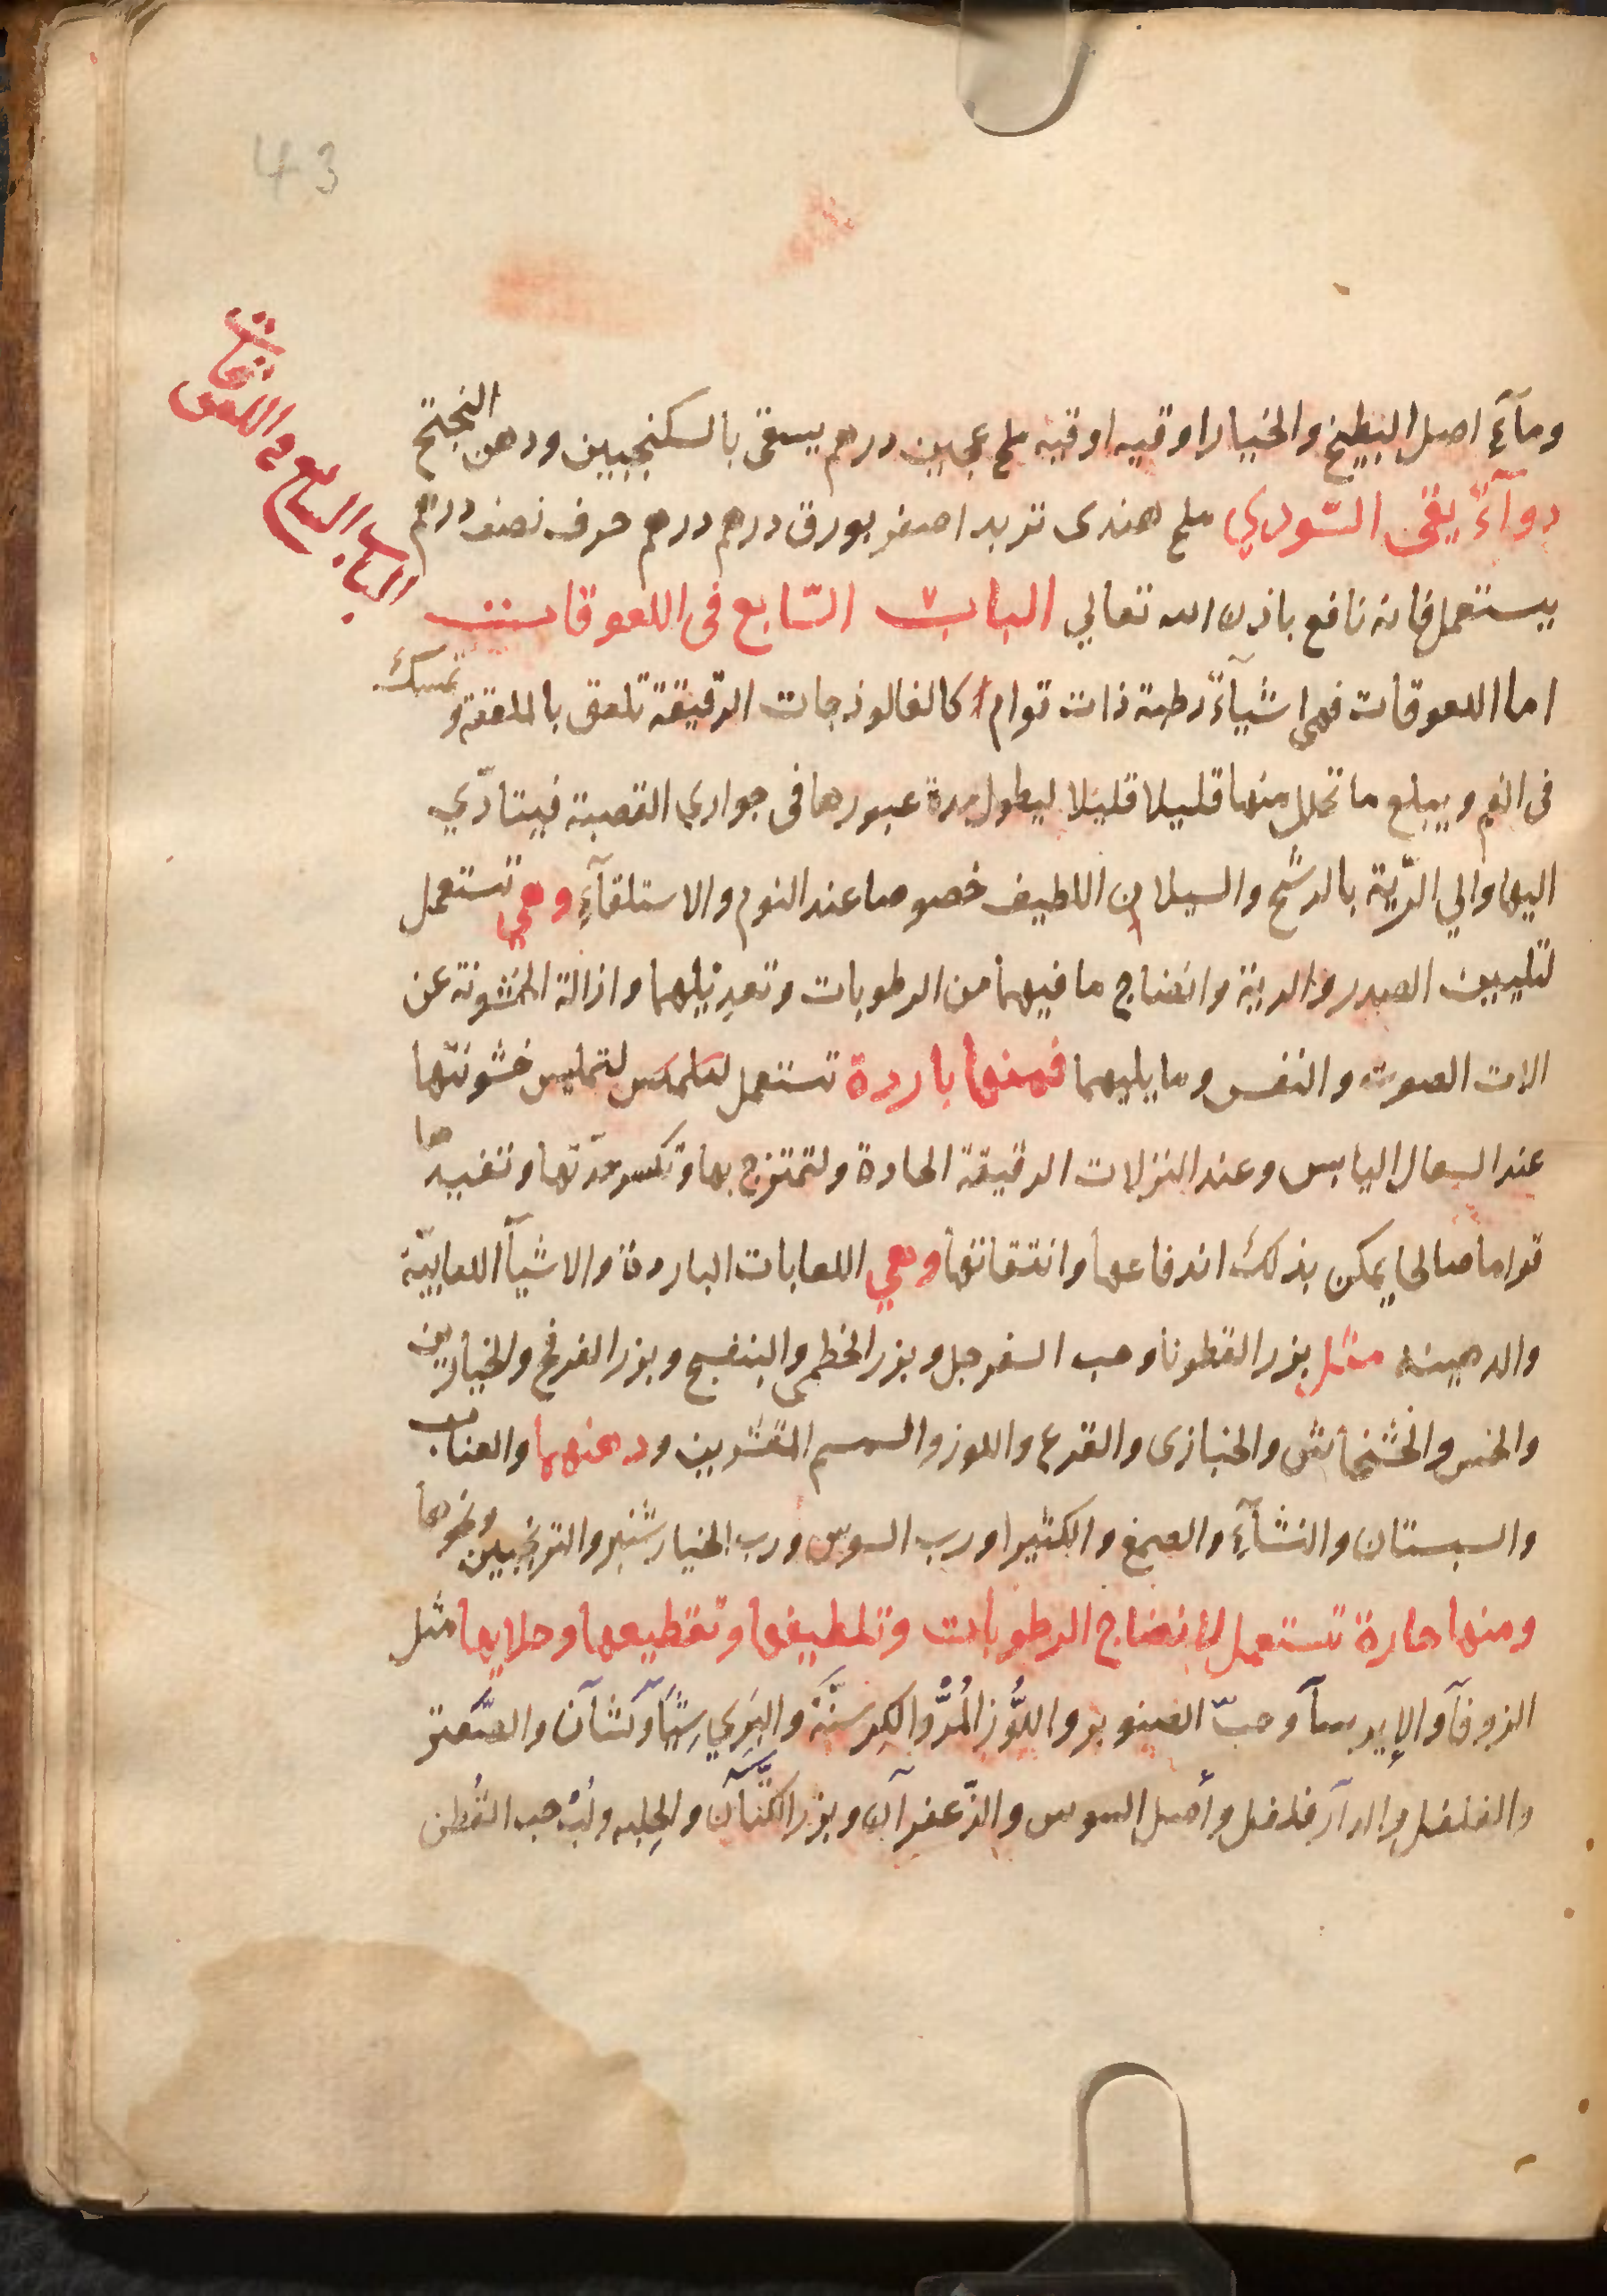 43
الباب السابع في اللعوقات
ومآءِ اصل البطيخ والخيار اوقيه اوقيه ملح عجين درهم يسقى بالسكنجبين ودهن
دوآءً يقى السّودي ملح هندى تربد اصفر بورق درهم درهم حرف نصف درهم
يستعمل فانه نافع باذن الله تعالي الباب ٧ السّابع فى اللعوقات
اما اللعوقات فهى اشيآءً رطبة ذات قوام كالفالوذجات الرّقيقة تلعق بالملعقة و تمسك
فى الفم ويبلع ما تحلل منها قليلا قليلا ليطول مدة عبورها فى جواري القصبة فيتادّي
اليها والي الرّية بالرشح والسيلان اللطيف خصوصا عند النوم والاستلقآءِ وهي تستعمل
لتليين الصدر والرية وانضاج ما فيهما من الرطوبات وتعديلهما وازالة الخشونة عن
الات الصوت والنفس وما يليهما فمنها باردة تستعمل لتمليس خشونتها
عند السعال اليابس وعند النزلات الرقيقة الحادة ولتمتزج بها وتكسر حدّتها وتفيدها
قواما صالحا يمكن بذلك اندفاعها وانتقاتها وهي اللعابات الباردة والاشيآ اللعابيّة
والدهينه مثل بزر القطونا وحب السفرجل وبزر الخطمى والبنفسج وبزر الفرفخ والخيارين
والخس والخشخاش والخبازى والقرع واللوز والسمسم المقشرين ودهنهما والعناب
والسبستان والنشآءِ والصمغ والكثيرا ورب السوس ورب الخيار شنبر والترنجبين ونحوها
ومنها حارة تستعمل لانضاج الرطوبات وتلطيفها وتقطيعها وجلايها مثل
الزوفآ والإيرسآ وحبّ الصنوبر واللَّوز المُرّ والكِرسنّة والبَرِي وَشِيَاوَشَآن والصَّعتر
والفلفل والدآر فلفل وأصل السوس والزّعفرآن وبزر الكتّآن والحِلبه ولبّ حب القُطن